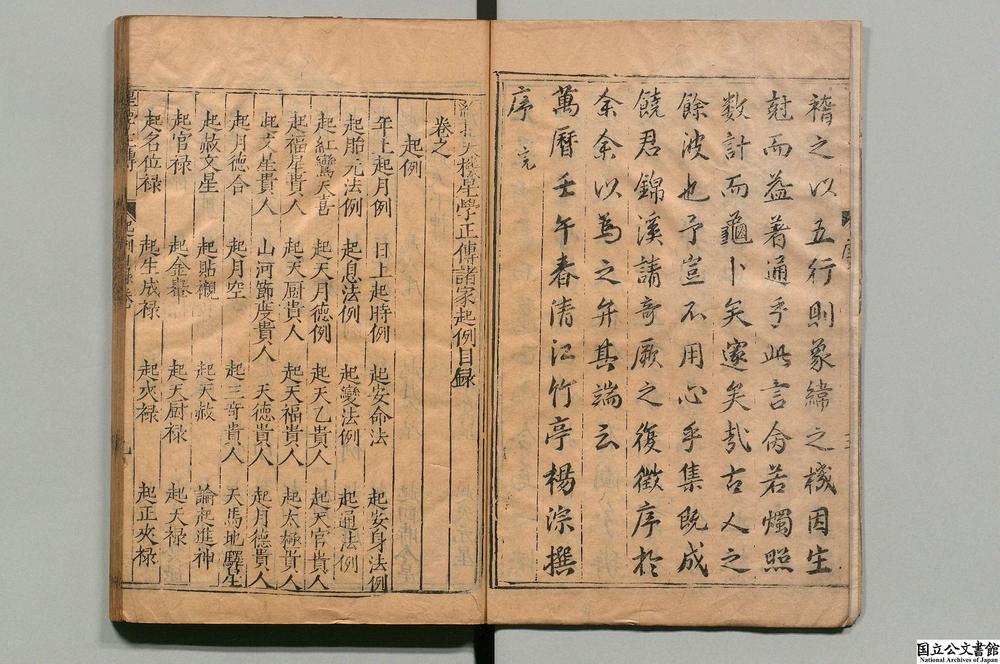 禬之以五行則象緯之機因生
尅而益著通乎此言侖若燭照
数計而龜卜矣邃矣哉古人之
餘波也予豈不用心乎集既成
饒君錦溪請竒厥之復徴序於
余余以為之弁其端云
萬曆壬午春清江竹亭楊淙撰
序
星學正傳諸家起例目録
卷之
起例
年上起月例 日上起時例 起安命法 起安身法例
起胎元法例 起息法例 起變法例 起通法例
起紅鸞天喜 起天月德例 起天乙貴人 起天官貴人
起福星貴人 起天厨貴人 起天福貴人 起太極貴人
起文星貴人 山河節度貴人 天德貴人 起月德貴人
起月德合 起月空 起三竒貴人 天馬地驛星
起赦文星 起貼觀 起天赦 論起進神
起官禄 起金轝 起天厨禄 起天禄
起名位禄 起生成禄 起夾禄 起正夾禄
国立公文書館
National Archives of Japan